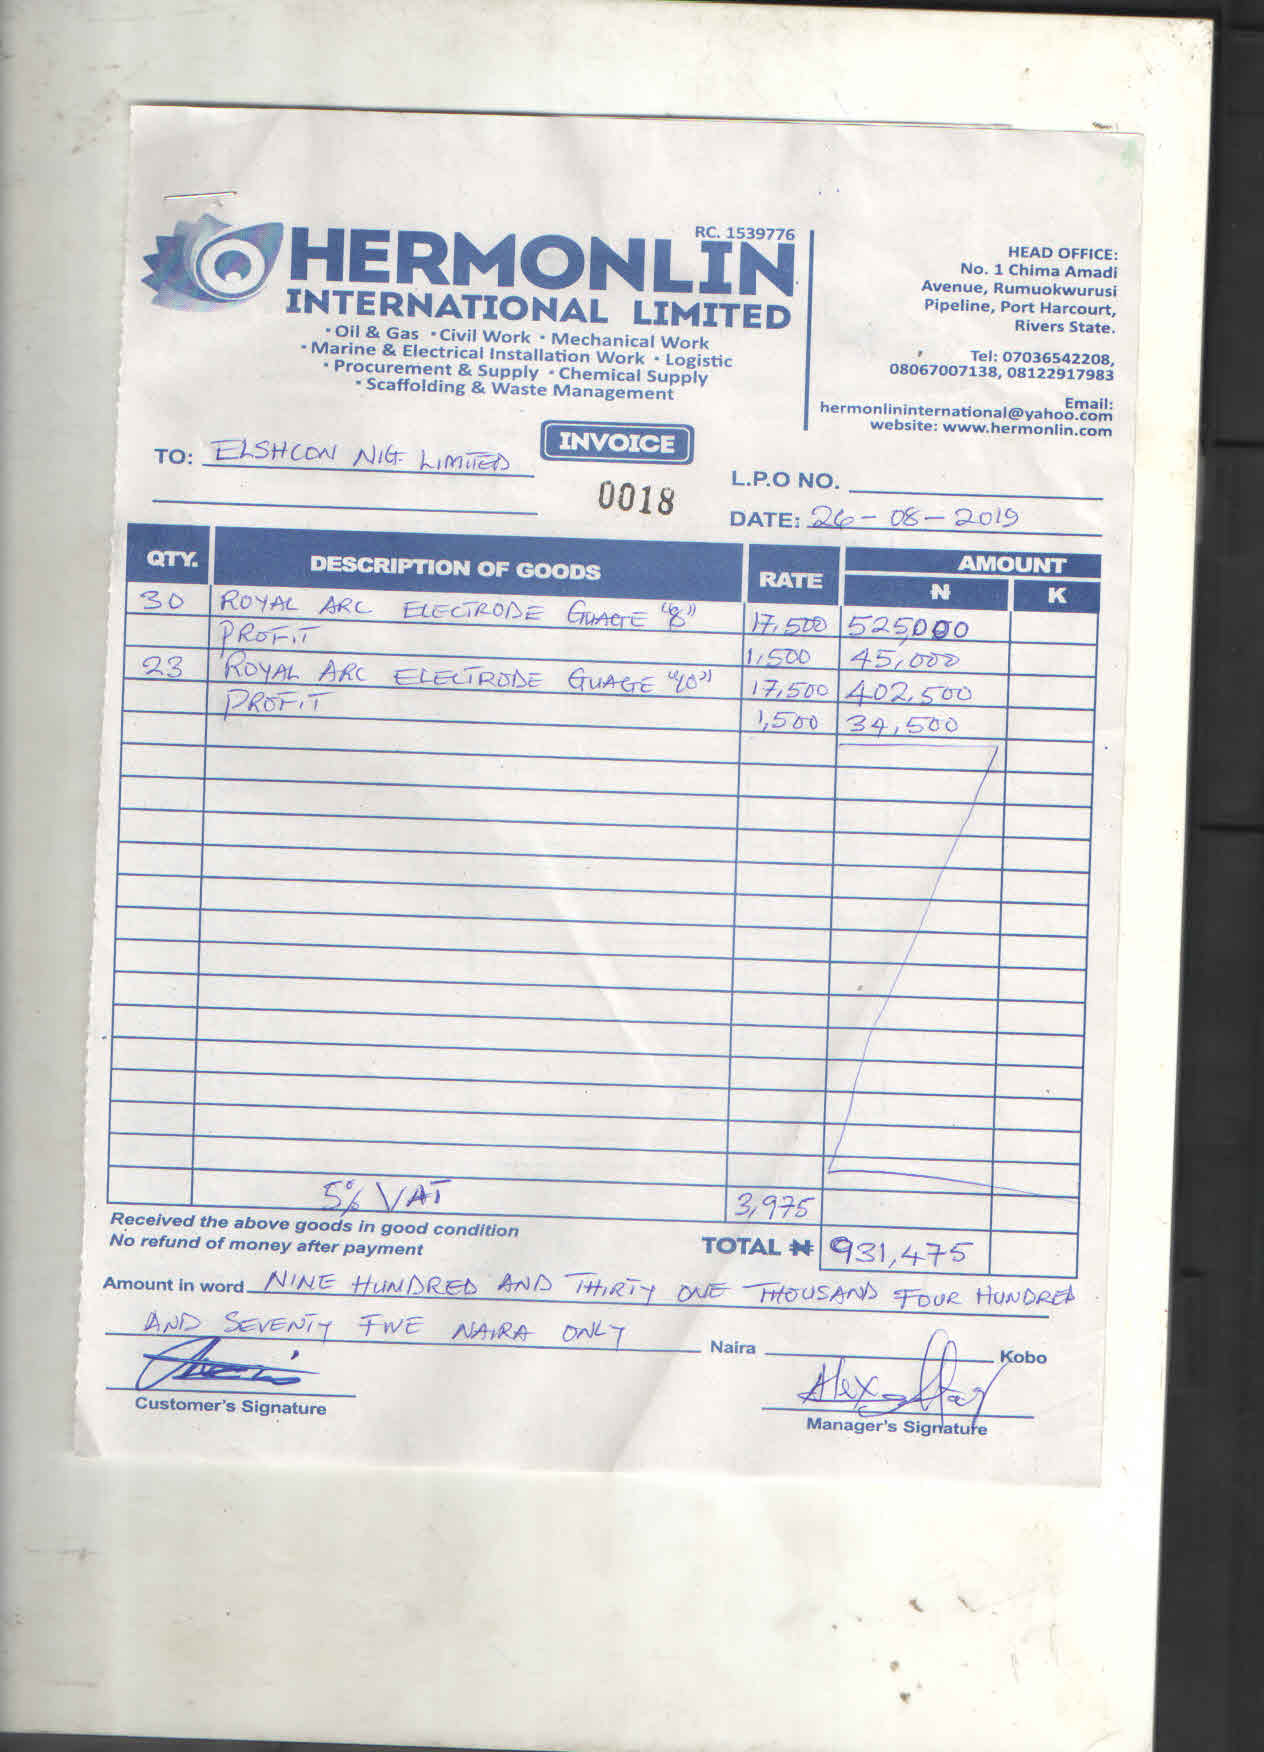 RC. 1539776
HERMONLIN
INTERNATIONAL LIMITED
• Oil & Gas • Civil Work • Mechanical Work
• Marine & Electrical Installation Work • Logistic
• Procurement & Supply • Chemical Supply
• Scaffolding & Waste Management
HEAD OFFICE:
No. 1 Chima Amadi
Avenue, Rumuokwurusi
Pipeline, Port Harcourt,
Rivers State.
Tel: 07036542208,
08067007138, 08122917983
Email:
hermonlininternational@yahoo.com
website: www.hermonlin.com
INVOICE
TO: ELSHCON NIG. LIMITED
0018
L.P.O NO.
DATE: 26-08-2019
QTY. DESCRIPTION OF GOODS RATE AMOUNT
₦ K
30 ROYAL ARC ELECTRODE GUAGE "8" 17,500 525,000
PROFIT 1,500 45,000
23 ROYAL ARC ELECTRODE GUAGE "10" 17,500 402,500
PROFIT 1,500 34,500
5% VAT 3,975
Received the above goods in good condition
No refund of money after payment
TOTAL ₦ 931,475
Amount in word NINE HUNDRED AND THIRTY ONE THOUSAND FOUR HUNDRED
AND SEVENTY FIVE NAIRA ONLY Naira Kobo
Customer's Signature
Alex
Manager's Signature